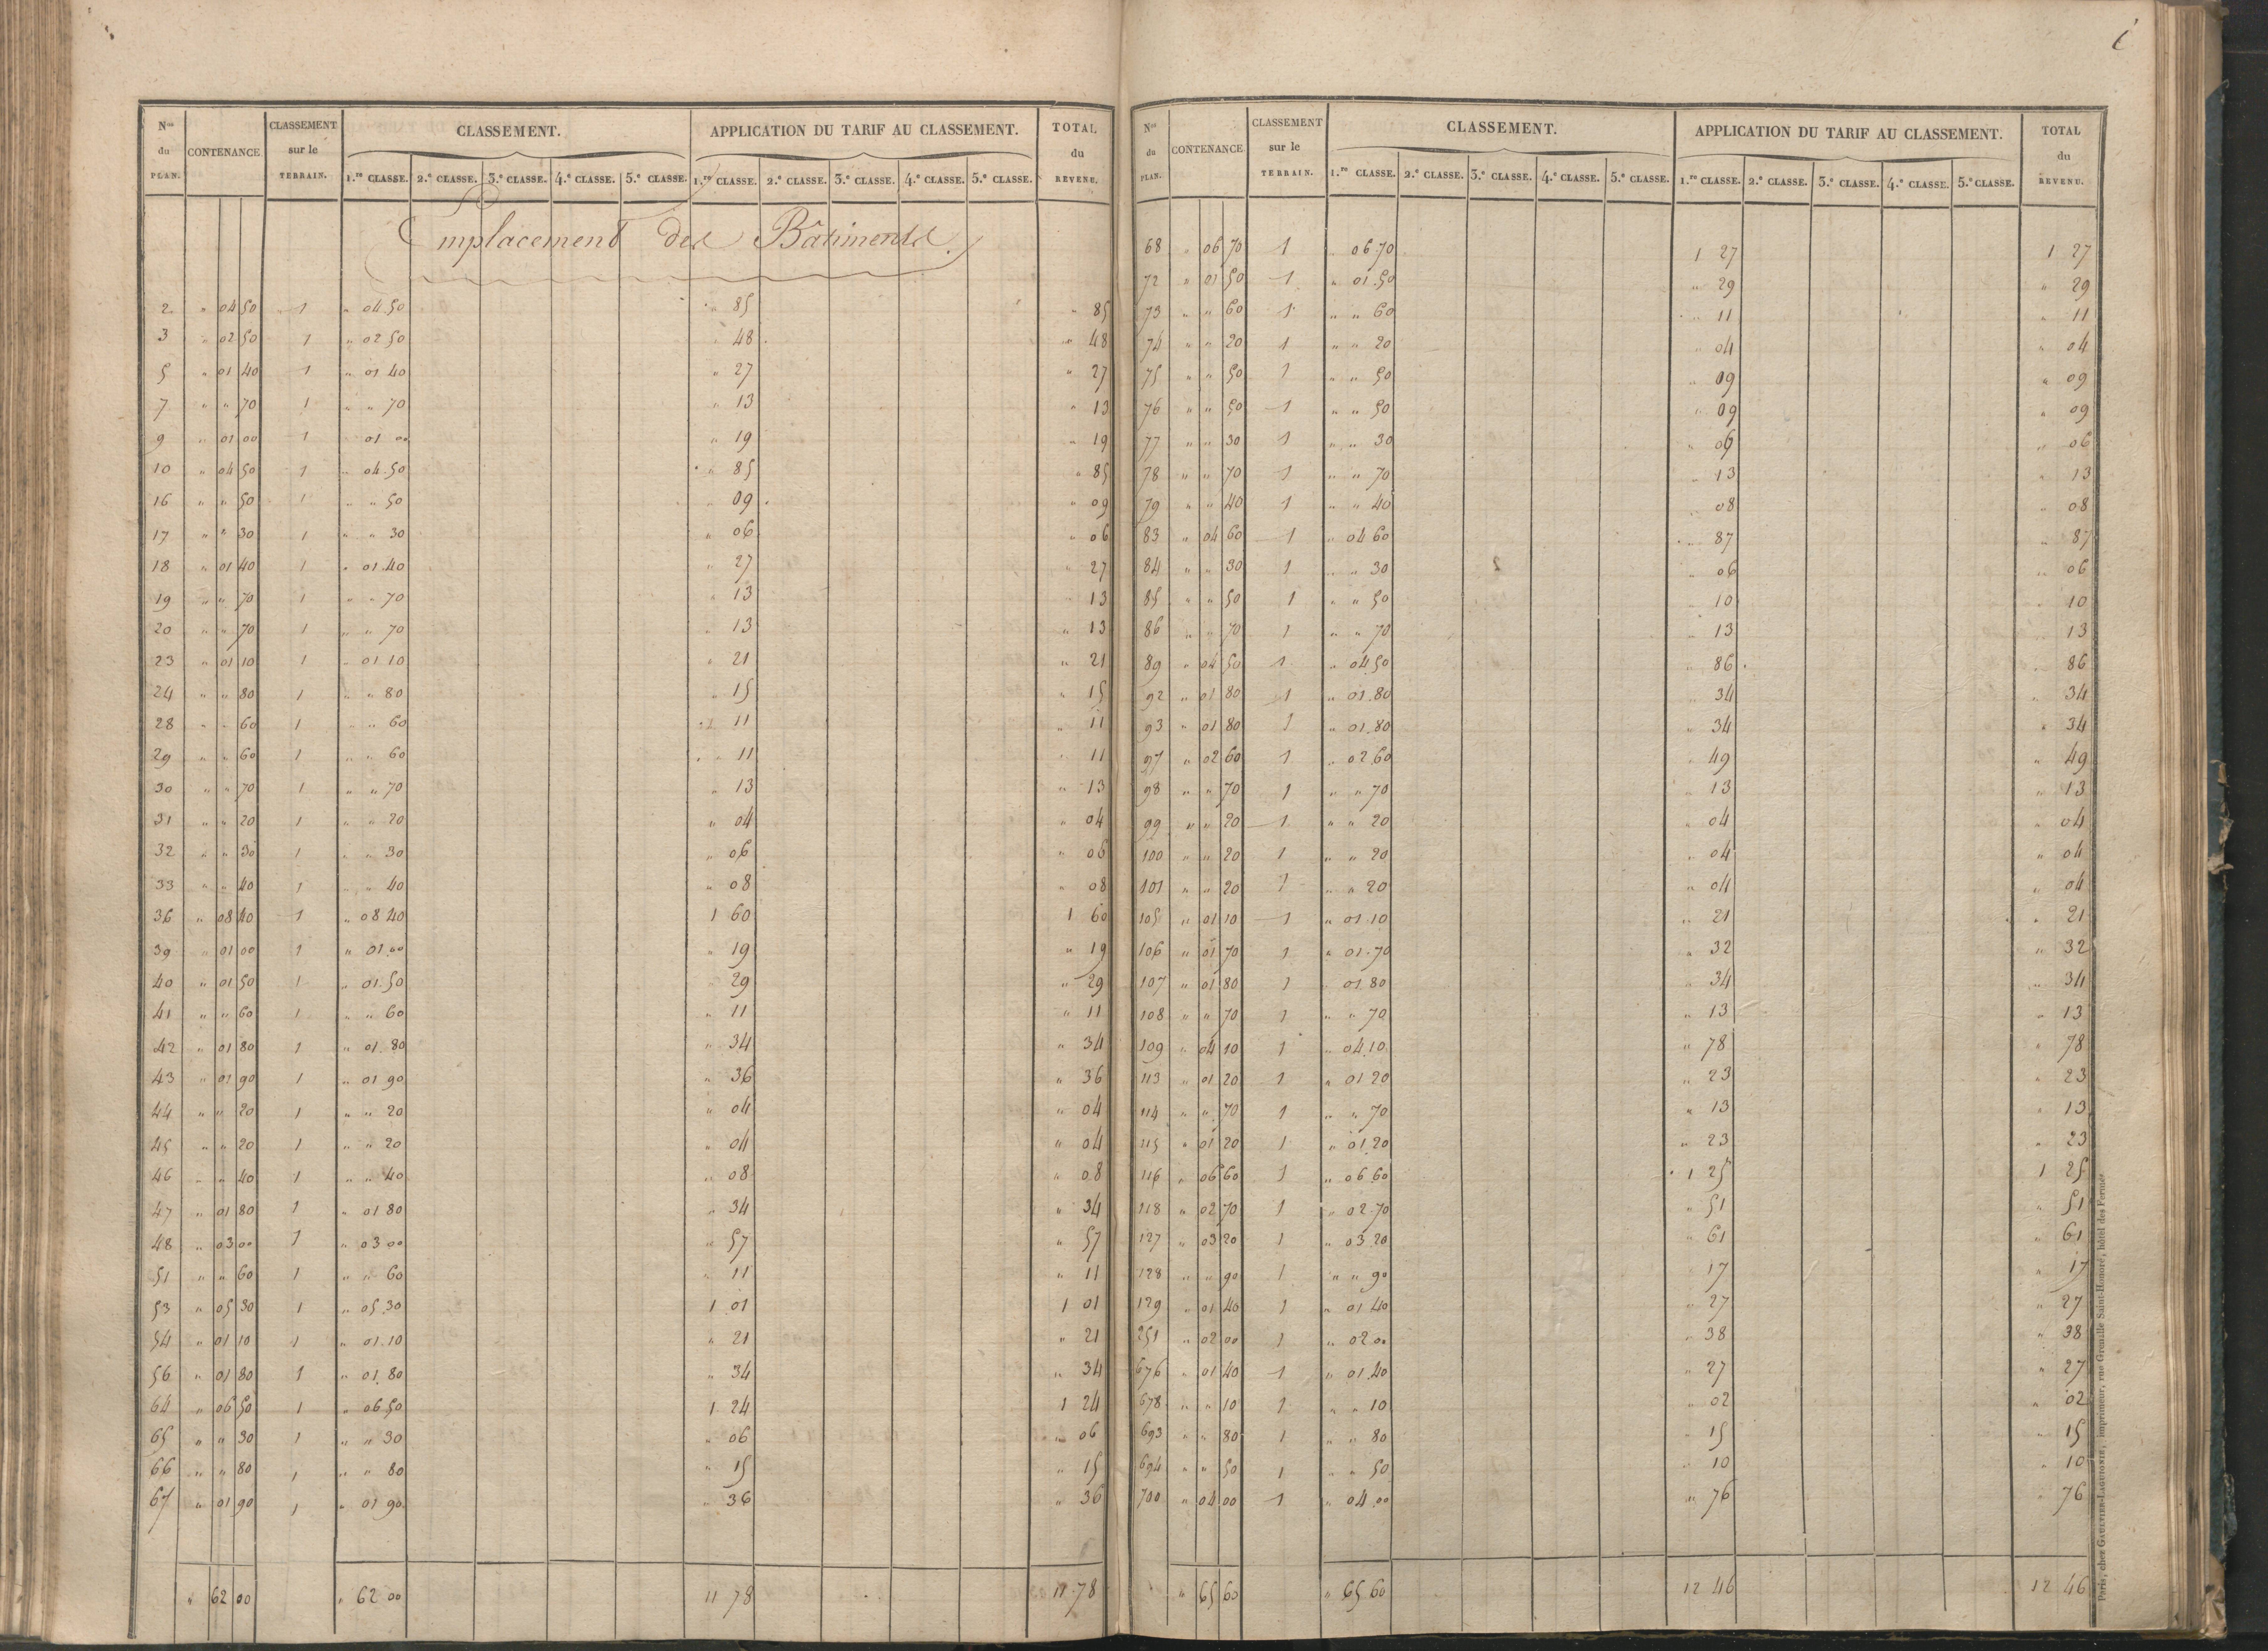 i
Nos du PLAN. CONTENANCE. CLASSEMENT sur le TERRAIN. CLASSEMENT. APPLICATION DU TARIF AU CLASSEMENT. TOTAL du REVENU.
1.re CLASSE. 2.e CLASSE. 3.e CLASSE. 4.e CLASSE. 5.e CLASSE. 1.re CLASSE. 2.e CLASSE. 3.e CLASSE. 4.e CLASSE. 5.e CLASSE.
Emplacement des Bâtiments
2 " 04 50 1 " 04.50 " 85 " 85
3 " 02 50 1 " 02 50 " 48 " 48
5 " 01 40 1 " 01 40 " 27 " 27
7 " " 70 1 " " 70 " 13 " 13
9 " 01 00 1 " 01 00 " 19 " 19
10 " 04 50 1 " 04.50 " 85 " 85
16 " " 50 1 " " 50 " 09 " 09
17 " " 30 1 " " 30 " 06 " 06
18 " 01 40 1 " 01.40 " 27 " 27
19 " " 70 1 " " 70 " 13 " 13
20 " " 70 1 " " 70 " 13 " 13
23 " 01 10 1 " 01 10 " 21 " 21
24 " " 80 1 " " 80 " 15 " 15
28 " " 60 1 " " 60 " 11 " 11
29 " " 60 1 " " 60 " 11 " 11
30 " " 70 1 " " 70 " 13 " 13
31 " " 20 1 " " 20 " 04 " 04
32 " " 30 1 " " 30 " 06 " 06
33 " " 40 1 " " 40 " 08 " 08
36 " 08 40 1 " 08 40 1 60 1 60
39 " 01 00 1 " 01.00 " 19 " 19
40 " 01 50 1 " 01.50 " 29 " 29
41 " " 60 1 " " 60 " 11 " 11
42 " 01 80 1 " 01.80 " 34 " 34
43 " 01 90 1 " 01 90 " 36 " 36
44 " " 20 1 " " 20 " 04 " 04
45 " " 20 1 " " 20 " 04 " 04
46 " " 40 1 " " 40 " 08 " 08
47 " 01 80 1 " 01 80 " 34 " 34
48 " 03 00 1 " 03 00 " 57 " 57
51 " " 60 1 " " 60 " 11 " 11
53 " 05 30 1 " 05.30 1 01 1 01
54 " 01 10 1 " 01.10 " 21 " 21
56 " 01 80 1 " 01.80 " 34 " 34
64 " 06 50 1 " 06 50 1 24 1 24
65 " " 30 1 " " 30 " 06 " 06
66 " " 80 1 " " 80 " 15 " 15
67 " 01 90 1 " 01 90 " 36 " 36
" 62 00 " 62 00 11 78 11 78
Nos du PLAN. CONTENANCE CLASSEMENT sur le TERRAIN. CLASSEMENT. APPLICATION DU TARIF AU CLASSEMENT. TOTAL du REVENU.
1.re CLASSE. 2.e CLASSE. 3.e CLASSE. 4.e CLASSE. 5.e CLASSE. 1.re CLASSE. 2.e CLASSE. 3.e CLASSE. 4.e CLASSE. 5.e CLASSE.
68 " 06 70 1 " 06.70 1 27 1 27
72 " 01 50 1 " 01.50 " 29 " 29
73 " " 60 1 " " 60 " 11 " 11
74 " " 20 1 " " 20 " 04 " 04
75 " " 50 1 " " 50 " 09 " 09
76 " " 50 1 " " 50 " 09 " 09
77 " " 30 1 " " 30 " 06 " 06
78 " " 70 1 " " 70 " 13 " 13
79 " " 40 1 " " 40 " 08 " 08
83 " 04 60 1 " 04 60 " 87 " 87
84 " " 30 1 " " 30 " 06 " 06
85 " " 50 1 " " 50 " 10 " 10
86 " " 70 1 " " 70 " 13 " 13
89 " 04 50 1 " 04.50 " 86 " 86
92 " 01 80 1 " 01.80 " 34 " 34
93 " 01 80 1 " 01.80 " 34 " 34
97 " 02 60 1 " 02.60 " 49 " 49
98 " " 70 1 " " 70 " 13 " 13
99 " " 20 1 " " 20 " 04 " 04
100 " " 20 1 " " 20 " 04 " 04
101 " " 20 1 " " 20 " 04 " 04
105 " 01 10 1 " 01.10 " 21 " 21
106 " 01 70 1 " 01.70 " 32 " 32
107 " 01 80 1 " 01.80 " 34 " 34
108 " " 70 1 " " 70 " 13 " 13
109 " 04 10 1 " 04.10 " 78 " 78
113 " 01 20 1 " 01 20 " 23 " 23
114 " " 70 1 " " 70 " 13 " 13
115 " 01 20 1 " 01.20 " 23 " 23
116 " 06 60 1 " 06 60 1 25 1 25
118 " 02 70 1 " 02.70 " 51 " 51
127 " 03 20 1 " 03.20 " 61 " 61
128 " " 90 1 " " 90 " 17 " 17
129 " 01 40 1 " 01 40 " 27 " 27
251 " 02 00 1 " 02.00 " 38 " 38
676 " 01 40 1 " 01.40 " 27 " 27
678 " " 10 1 " " 10 " 02 " 02
693 " " 80 1 " " 80 " 15 " 15
694 " " 50 1 " " 50 " 10 " 10
700 " 04 00 1 " 04.00 " 76 " 76
" 65 60 " 65 60 12 46 12 46
Paris, chez GAULTIER-LAGUIONIE, imprimeur, rue Grenelle Saint-Honoré, hôtel des Fermes